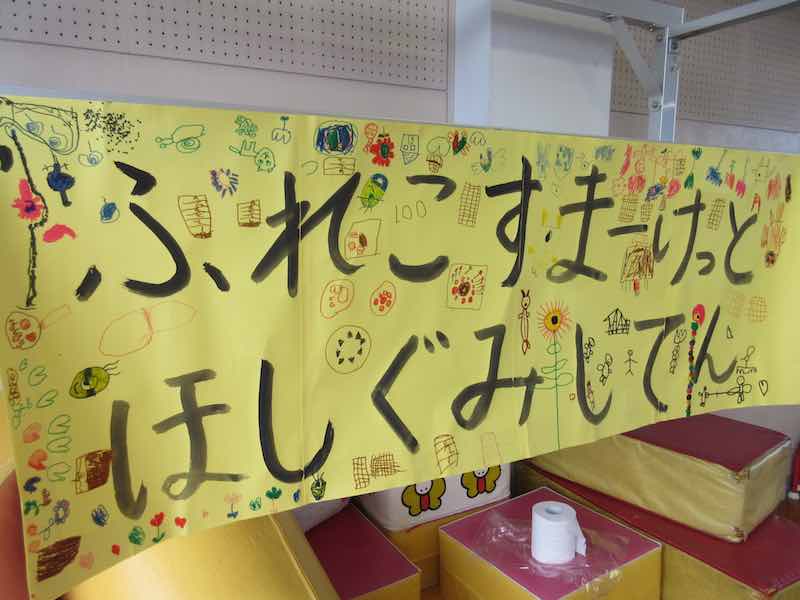 ふれこす・まーけっと
ほしぐみしてん
100